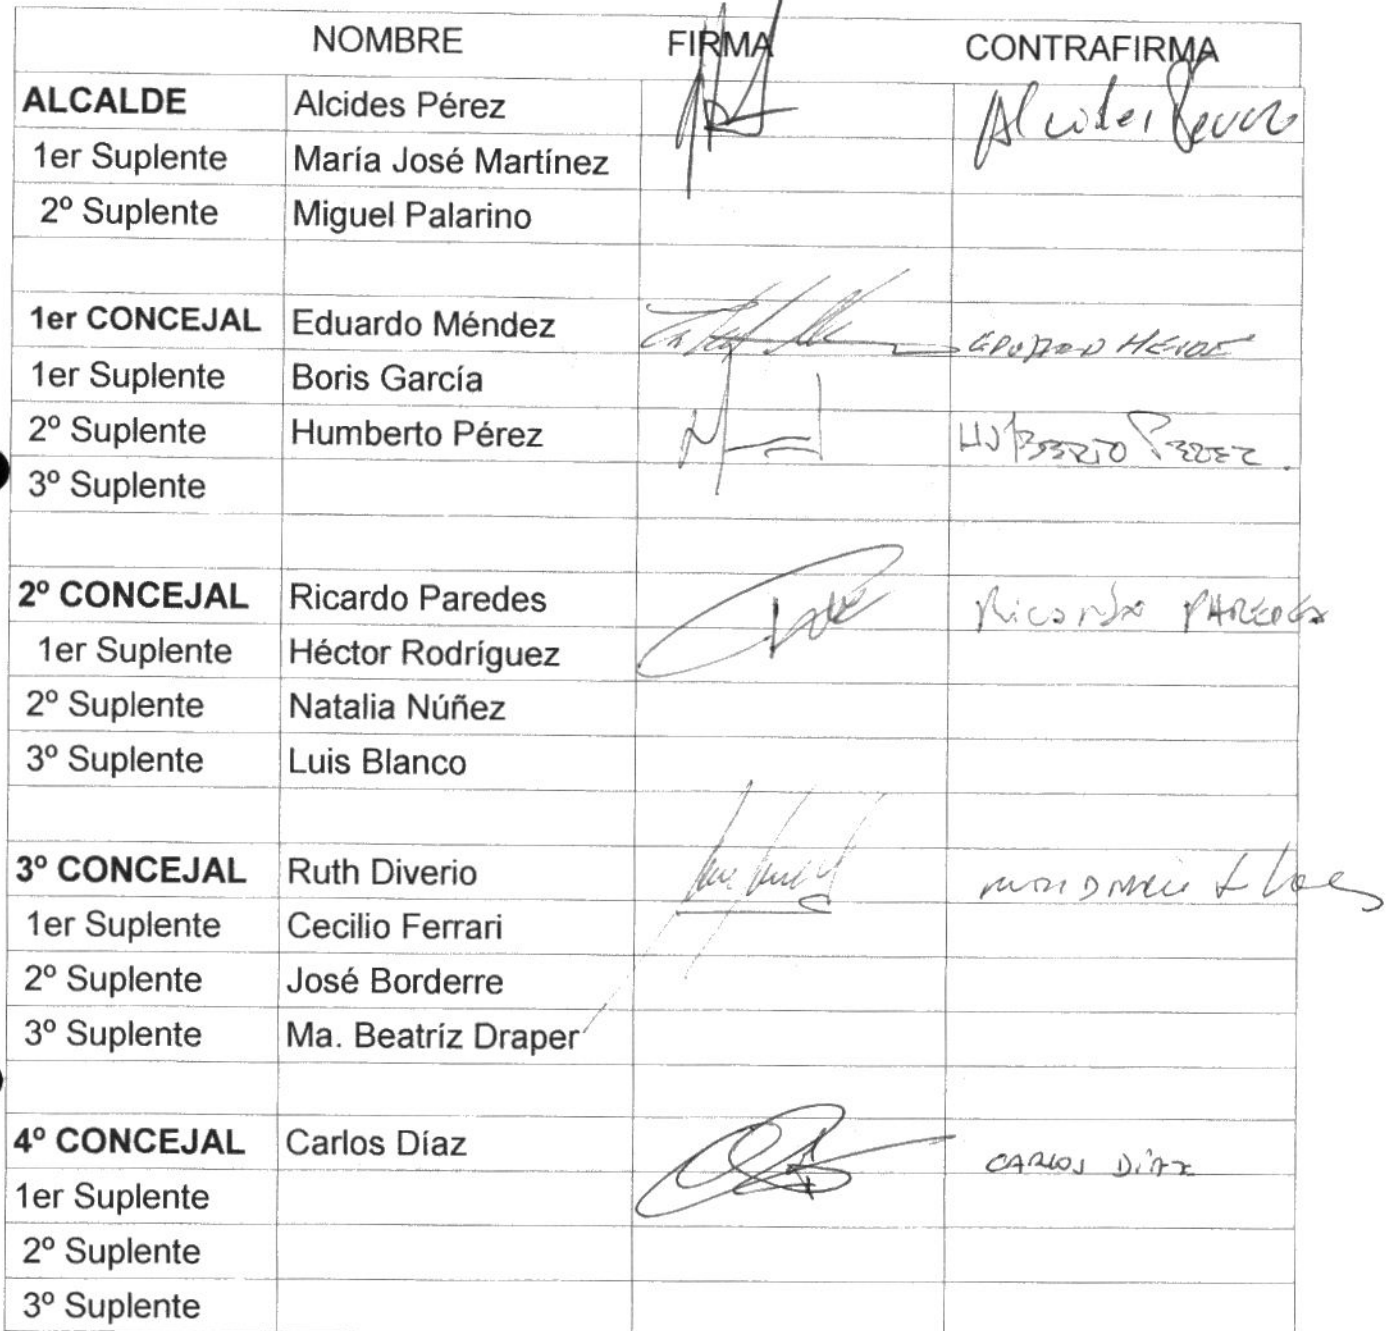 NOMBRE FIRMA CONTRAFIRMA
ALCALDE Alcides Pérez Alcides Perez
1er Suplente María José Martínez
2º Suplente Miguel Palarino
1er CONCEJAL Eduardo Méndez
1er Suplente Boris García
2º Suplente Humberto Pérez HUMBERTO PEREZ.
3º Suplente
2º CONCEJAL Ricardo Paredes Ricardo PAREDES
1er Suplente Héctor Rodríguez
2º Suplente Natalia Núñez
3º Suplente Luis Blanco
3º CONCEJAL Ruth Diverio
1er Suplente Cecilio Ferrari
2º Suplente José Borderre
3º Suplente Ma. Beatríz Draper
4º CONCEJAL Carlos Díaz CARLOS DíAZ
1er Suplente
2º Suplente
3º Suplente